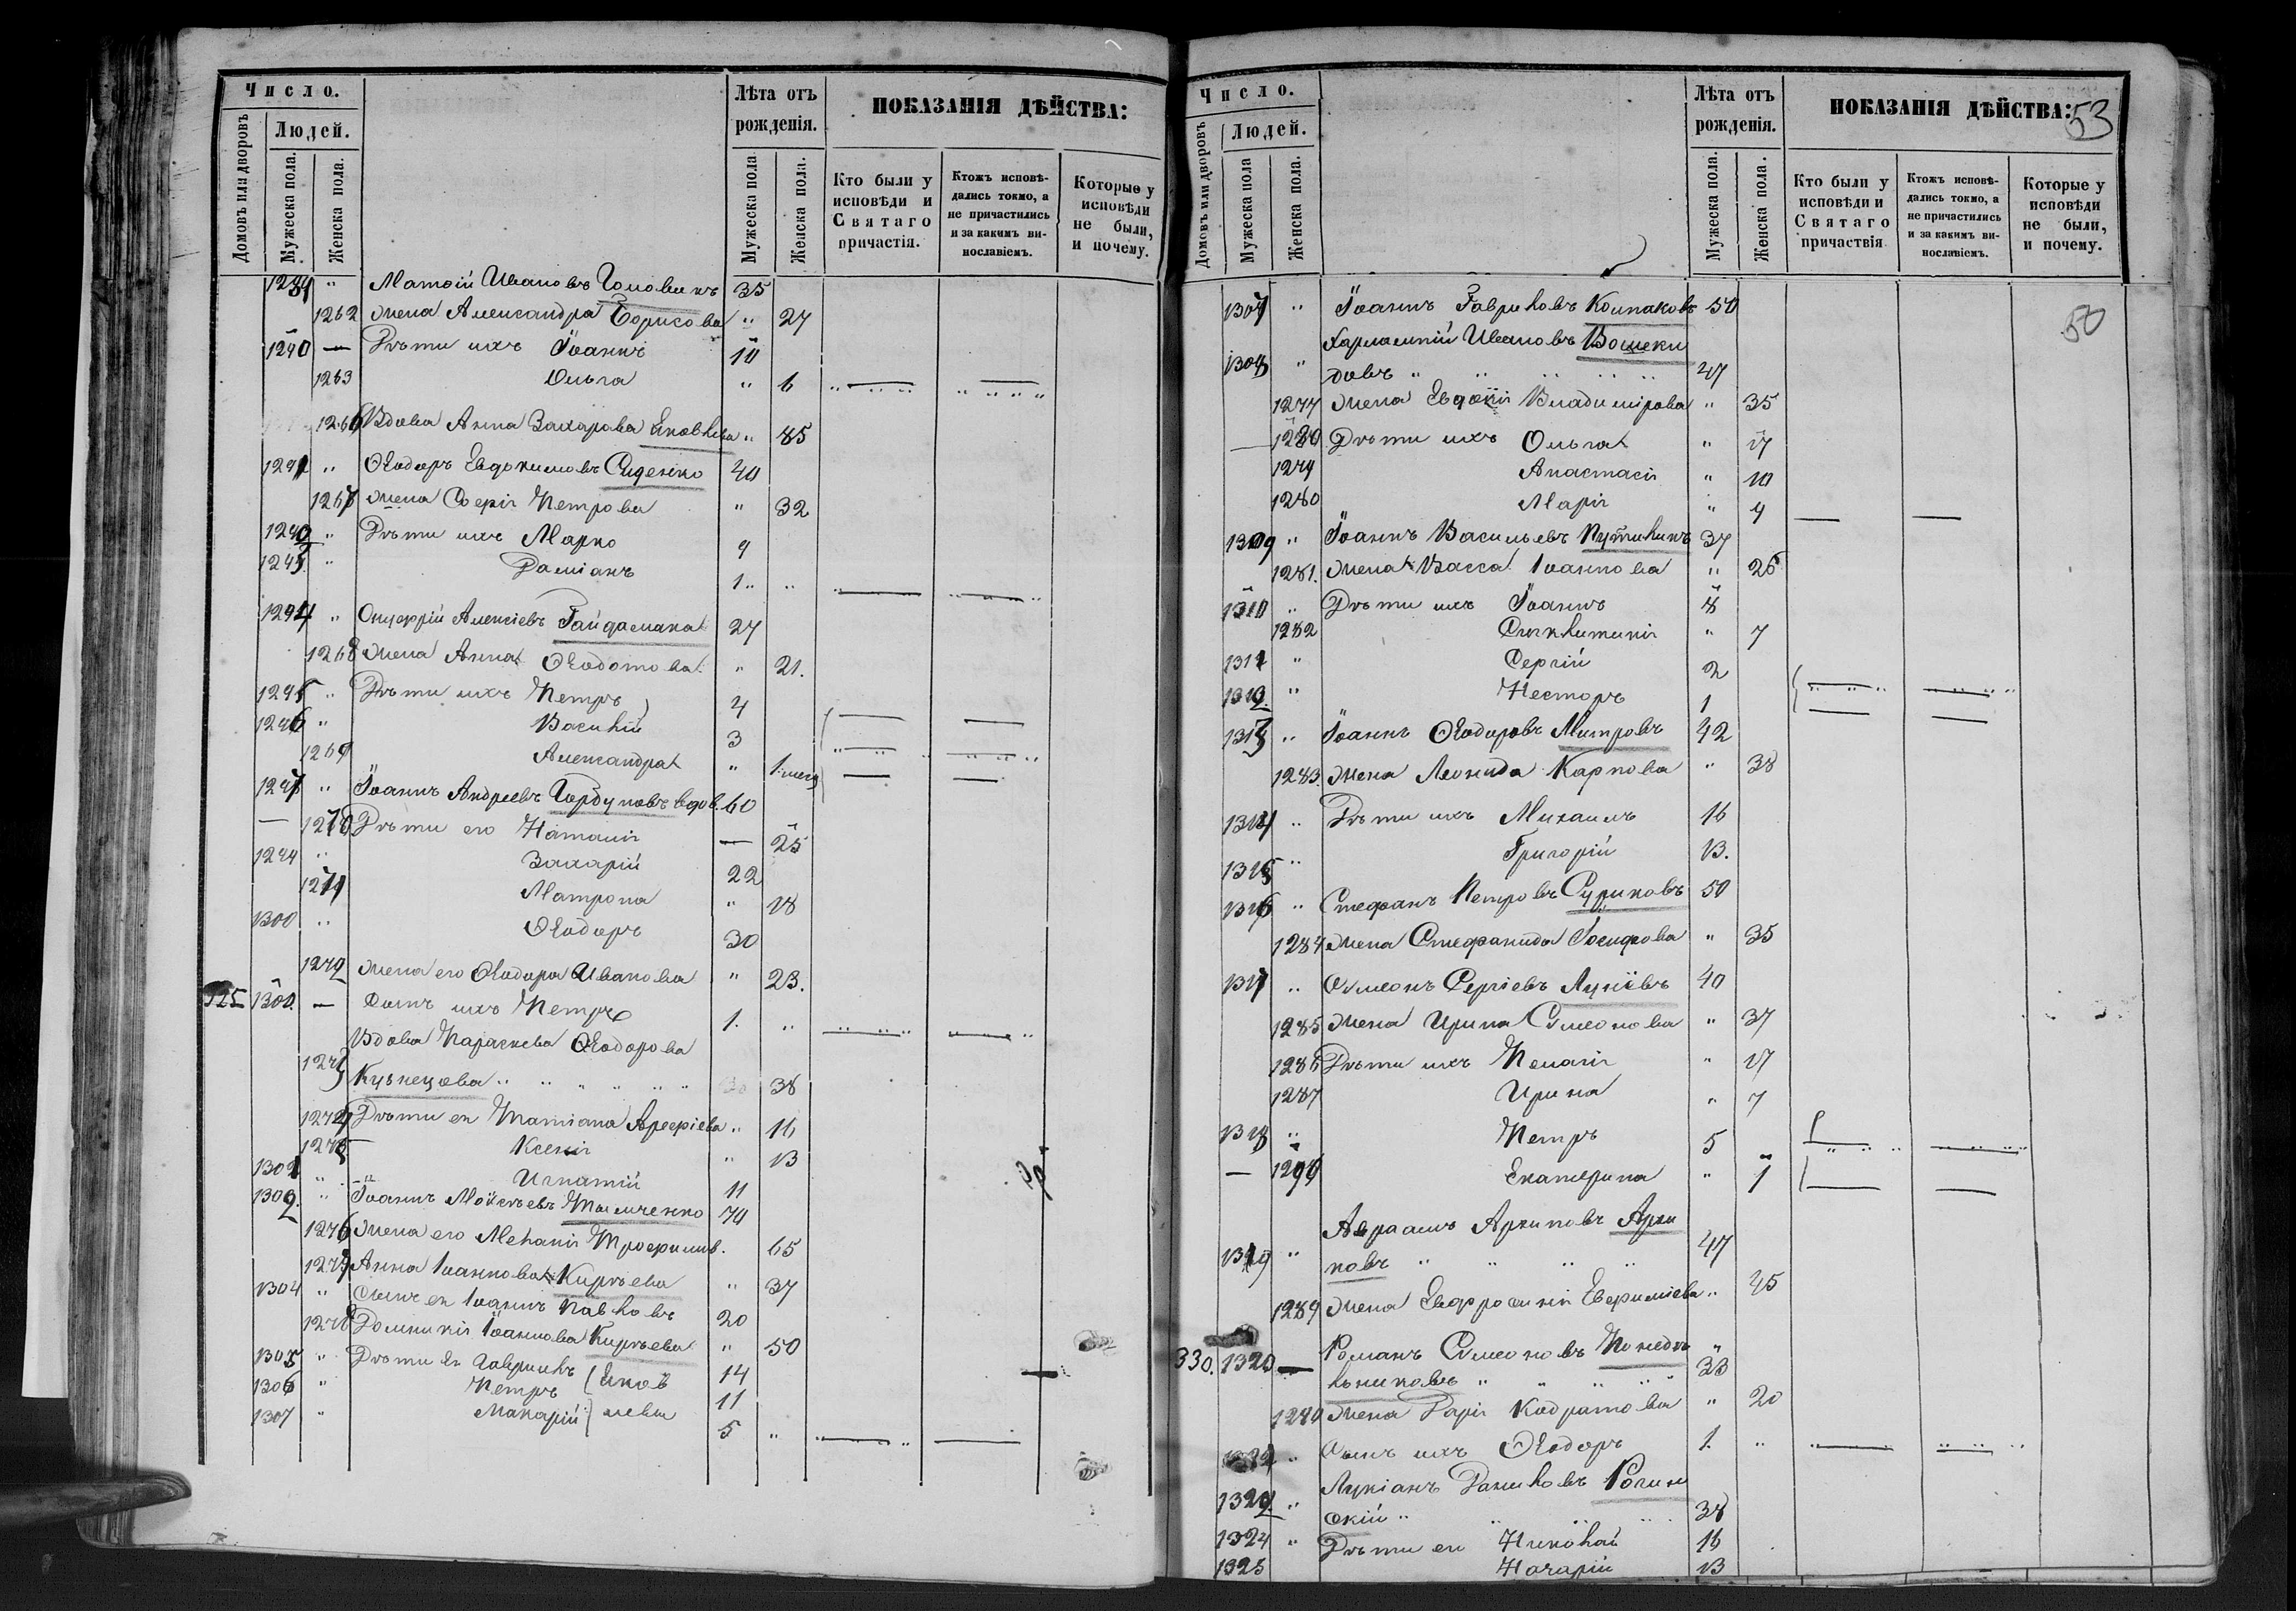 Число.
Людей.
Домовъ или дворовъ
Мужеска пола.
Женска пола.
Лѣта отъ рожденія.
Мужеска пола
Женска пола.
ПОКАЗАНІЯ ДѢЙСТВА:
Кто были у исповѣди и Святаго причастія.
Ктожъ исповѣдались токмо, а не причастились и за какимъ винославіемъ.
Которые у исповѣди не были, и почему.
Матѳій Ивановъ 35
1262 жена Александра Борисова " 27
1290 — Дѣти ихъ Іоаннъ 10
1263 Ольга " 6
1266 Вдова Анна Захарова " 85
" Ѳеодоръ Евдокимовъ Сиденко 40
1267 жена Софія Петрова " 32
" Дѣти ихъ Марко 9
" Даміанъ 1 "
1294 " Онуфрій Алексіевъ Гайдамака 27
1268 жена Анна Ѳеодотова " 21.
1295 " Дѣти ихъ Петръ 4
1296 " Василій 3
1269 Александра "
1297 " Іоаннъ Андреевъ Горбуновъ вдов. 60
— 1270 Дѣти его Наталія — 25
" Захарій 22
1271 Матрона " 18
1300 " Ѳеодоръ 30
1272 жена его Ѳеодора Иванова " 23.
325 — Сынъ ихъ Петръ 1. "
Вдова Параскева Ѳеодорова
1273 Кузнецова " " " " " 38
1274 Дѣти ея Татіана Арефіева " 16
1275 Ксенія " 13
" Игнатій 11
" Іоаннъ Моѵсѣевъ Тимченко 70
1276 жена его Меланія Трофимов. 65
Анна Іоаннова Кирѣева " 37
1304 " Сынъ ея Іоаннъ Павловъ 20
1278 Домникія Іоаннова Кирѣева " 50
1305 " Дѣти ея Гавріилъ 14
1306 " Петръ 11
1307 " Макарій 5 "
Число.
Людей.
Домовъ или дворовъ
Мужеска пола
Женска пола.
Лѣта отъ рожденія.
Мужеска пола.
Женска пола.
ПОКАЗАНІЯ ДѢЙСТВА: 53
Кто были у исповѣди и Святаго причаствія
Ктожъ исповѣдались токмо, а не причастились и за какимъ винославіемъ.
Которые у исповѣди не были, и почему.
50
1307 " Іоаннъ Гавриловъ Колпаковъ 50
Харлампій Ивановъ Вошеки
1308 " довъ " " " " 47
1277 жена Евдокія Владимірова " 35
— 1280 Дѣти ихъ Ольга " 17
1279 Анастасія " 10
1280 Марія " 4
1309 " Іоаннъ Васильевъ Путилинъ 37
1281. жена Васса Іоаннова " 26
1310 " Дѣти ихъ Іоаннъ 8
1282 " 7
" Сергій 2
" Несторъ 1
1313 " Іоаннъ Ѳеодоровъ Митровъ 42
1283. жена Леонида Карпова " 38
1314 " Дѣти ихъ Михаилъ 16
1315 " Григорій 13.
1316 " Стефанъ Петровъ Суриковъ 50
1284 жена Стефанида Іосифова " 35
1317 " Сѵмеонъ Сергіевъ 40
1285 жена Ирина Сѵмеонова " 37
1286 Дѣти ихъ Пелагія " 17
1287 Ирина " 7
1318 " Петръ 5 "
— Екатерина " 1
Авраамъ Архиповъ Архи
1319 " повъ " " " " 47
1289 жена Евфросинія Евфиміева " 45
Романъ Сѵмеоновъ Понедѣ
330. 1320 — льниковъ " " " " 33
1280 жена Дарія Кодратова " 20
" Сынъ ихъ Ѳеодоръ 1. "
Лукіанъ Даниловъ Рогин
" скій " " " 38
1324 " Дѣти ея Николай 16
1325 Назарій 13